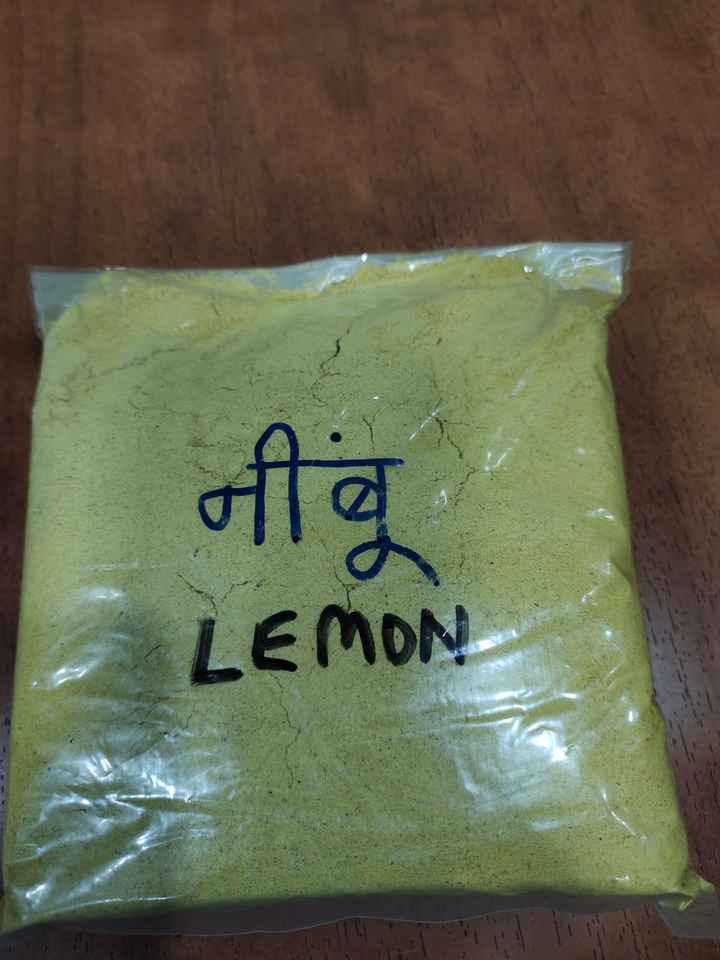 नींबू
LEMON